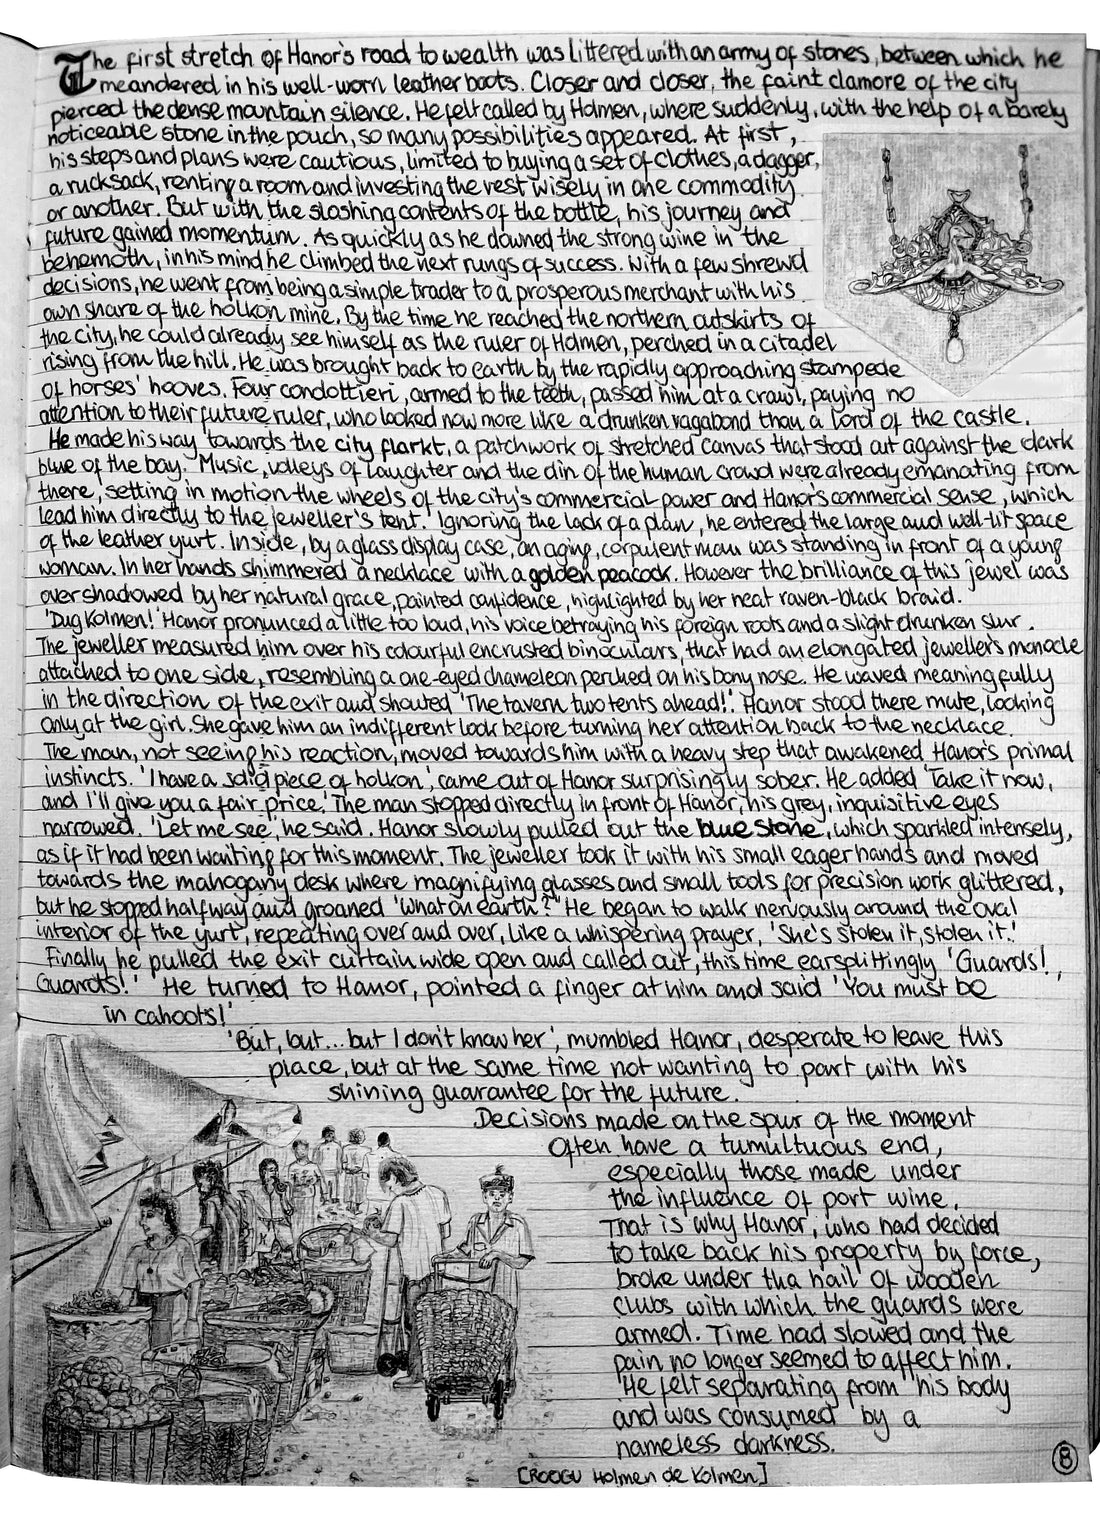 The first stretch of Hanor's road to wealth was littered with an army of stones, between which he
meandered in his well-worn leather boots. Closer and closer, the faint clamore of the city
pierced the dense mountain silence. He felt called by Holmen, where suddenly, with the help of a barely
noticeable stone in the pouch, so many possibilities appeared. At first,
his steps and plans were cautious, limited to buying a set of clothes, a dagger,
a rucksack, renting a room and investing the rest wisely in one commodity
or another. But with the sloshing contents of the bottle, his journey and
future gained momentum. As quickly as he downed the strong wine in the
behemoth, in his mind he climbed the next rungs of success. With a few shrewd
decisions, he went from being a simple trader to a prosperous merchant with his
own share of the holkon mine. By the time he reached the northern outskirts of
the city, he could already see himself as the ruler of Holmen, perched in a citadel
rising from the hill. He was brought back to earth by the rapidly approaching stampede
of horses' hooves. Four condottieri, armed to the teeth, passed him at a crawl, paying no
attention to their future ruler, who looked now more like a drunken vagabond than a Lord of the castle.
He made his way towards the city flarkt, a patchwork of stretched canvas that stood out against the dark
blue of the bay. Music, volleys of laughter and the din of the human crowd were already emanating from
there, setting in motion the wheels of the city's commercial power and Hanor's commercial sense, which
lead him directly to the jeweller's tent. Ignoring the lack of a plan, he entered the large and well-lit space
of the leather yurt. Inside, by a glass display case, an aging, corpulent man was standing in front of a young
woman. In her hands shimmered a necklace with a golden peacock. However the brilliance of this jewel was
overshadowed by her natural grace, painted confidence, highlighted by her neat raven-black braid.
'Dug Kolmen!' Hanor pronunced a little too loud, his voice betraying his foreign roots and a slight drunken slur.
The jeweller measured him over his colourful encrusted binoculars, that had an elongated jeweller's monocle
attached to one side, resembling a one-eyed chameleon perched on his bony nose. He waved meaningfully
in the direction of the exit and shouted 'The tavern two tents ahead!'. Hanor stood there mute, looking
only at the girl. She gave him an indifferent look before turning her attention back to the necklace.
The man, not seeing his reaction, moved towards him with a heavy step that awakened Hanor's primal
instincts. 'I have a solid piece of holkon', came out of Hanor surprisingly sober. He added 'Take it now,
and I'll give you a fair price.' The man stopped directly in front of Hanor, his grey, inquisitive eyes
narrowed. 'Let me see', he said. Hanor slowly pulled out the blue stone, which sparkled intensely,
as if it had been waiting for this moment. The jeweller took it with his small eager hands and moved
towards the mahogany desk where magnifying glasses and small tools for precision work glittered,
but he stopped halfway and groaned 'What on earth?' He began to walk nervously around the oval
interior of the yurt, repeating over and over, like a whispering prayer, 'She's stolen it, stolen it.'
Finally he pulled the exit curtain wide open and called out, this time earsplittingly 'Guards!,
Guards!' He turned to Hanor, pointed a finger at him and said 'You must be
in cahoots!'
'But, but... but I don't know her', mumbled Hanor, desperate to leave this
place, but at the same time not wanting to part with his
shining guarantee for the future.
Decisions made on the spur of the moment
often have a tumultuous end,
especially those made under
the influence of port wine.
That is why Hanor, who had decided
to take back his property by force,
broke under tha hail of wooden
clubs with which the guards were
armed. Time had slowed and the
pain no longer seemed to affect him.
He felt separating from his body
and was consumed by a
nameless darkness.
[ROOGU Holmen de Kolmen]
8